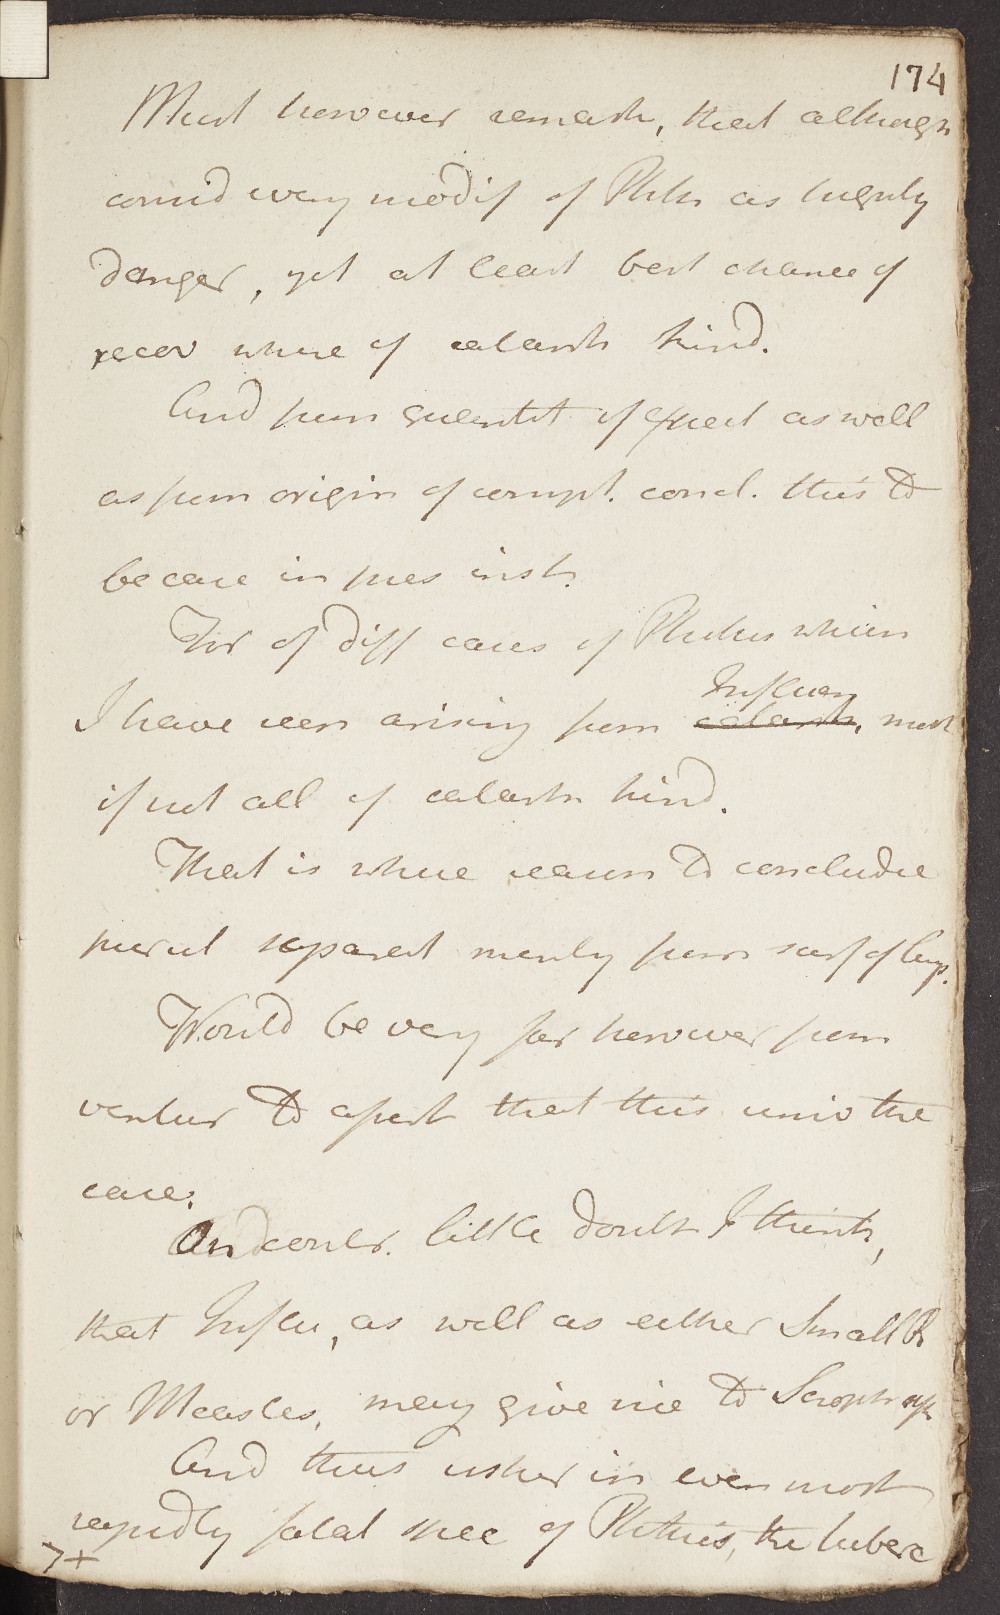 174
Must however remark, that although
consid every modif of Phthis as highly
danger, yet at least best chance of
recov where of catarrh kind.
And from quantit of expect as well
as from origin of compl. concl. this to
be case in pres inst.
For of diff cases of Phthis which
Influen
I have seen arising from catarrh, most
if not all of catarrh kind.
That is where reason to conclude
purul separat merely from surf of lungs.
Would be very far however from
ventur to assert that this univ the
case.
And contr. little doubt I think,
that Influ, as well as either Small P
or Measles, may give rise to Scroph
And thus usher in even most
rapidly fatal spec of Phthisis, the tuberc
7+